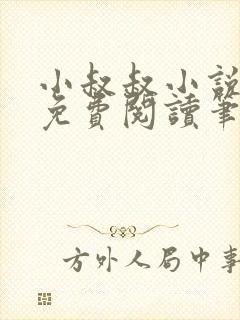 小叔叔小說
免費閱讀筆
方外人局中事